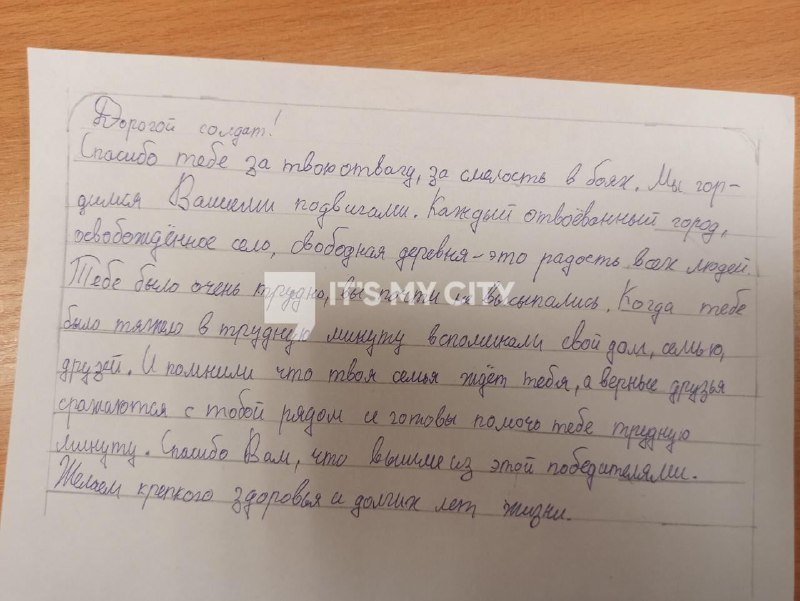 Дорогой солдат!
Спасибо тебе за твою отвагу, за смелость в боях. Мы гор-
димся Вашими подвигами. Каждый отвоёванный город,
освобождённое село, свободная деревня - это радость всех людей.
Тебе было очень трудно, вы почти не высыпались. Когда тебе
IT'S MY CITY
было тяжело в трудную минуту вспоминали свой дом, семью,
друзей. И помнили что твоя семья ждёт тебя, а верные друзья
сражаются с тобой рядом и готовы помочь тебе трудную
минуту. Спасибо Вам, что вышли из этой победителями.
Желаем крепкого здоровья и долгих лет жизни.